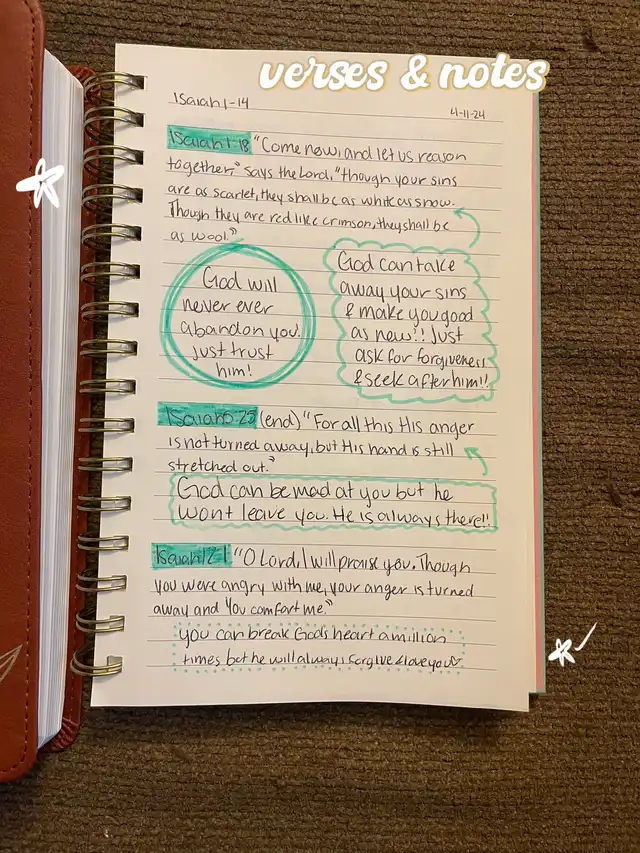 verses & notes
Isaiah 1-14
4-11-24
Isaiah 1:18 "Come now, and let us reason
together," says the Lord, "though your sins
are as scarlet, they shall be as white as snow.
Though they are red like crimson, they shall be
as wool."
God will
never ever
abandon you.
Just trust
him!
God can take
away your sins
& make you good
as new!! Just
ask for forgiveness
& seek after him!!
Isaiah 5:25 (end) "For all this His anger
is not turned away, but His hand is still
stretched out."
God can be mad at you but he
wont leave you. He is always there!!
Isaiah 12:1 "O Lord, I will praise you. Though
you were angry with me, your anger is turned
away and You comfort me."
you can break Gods heart a million
times but he will always forgive & love you♡